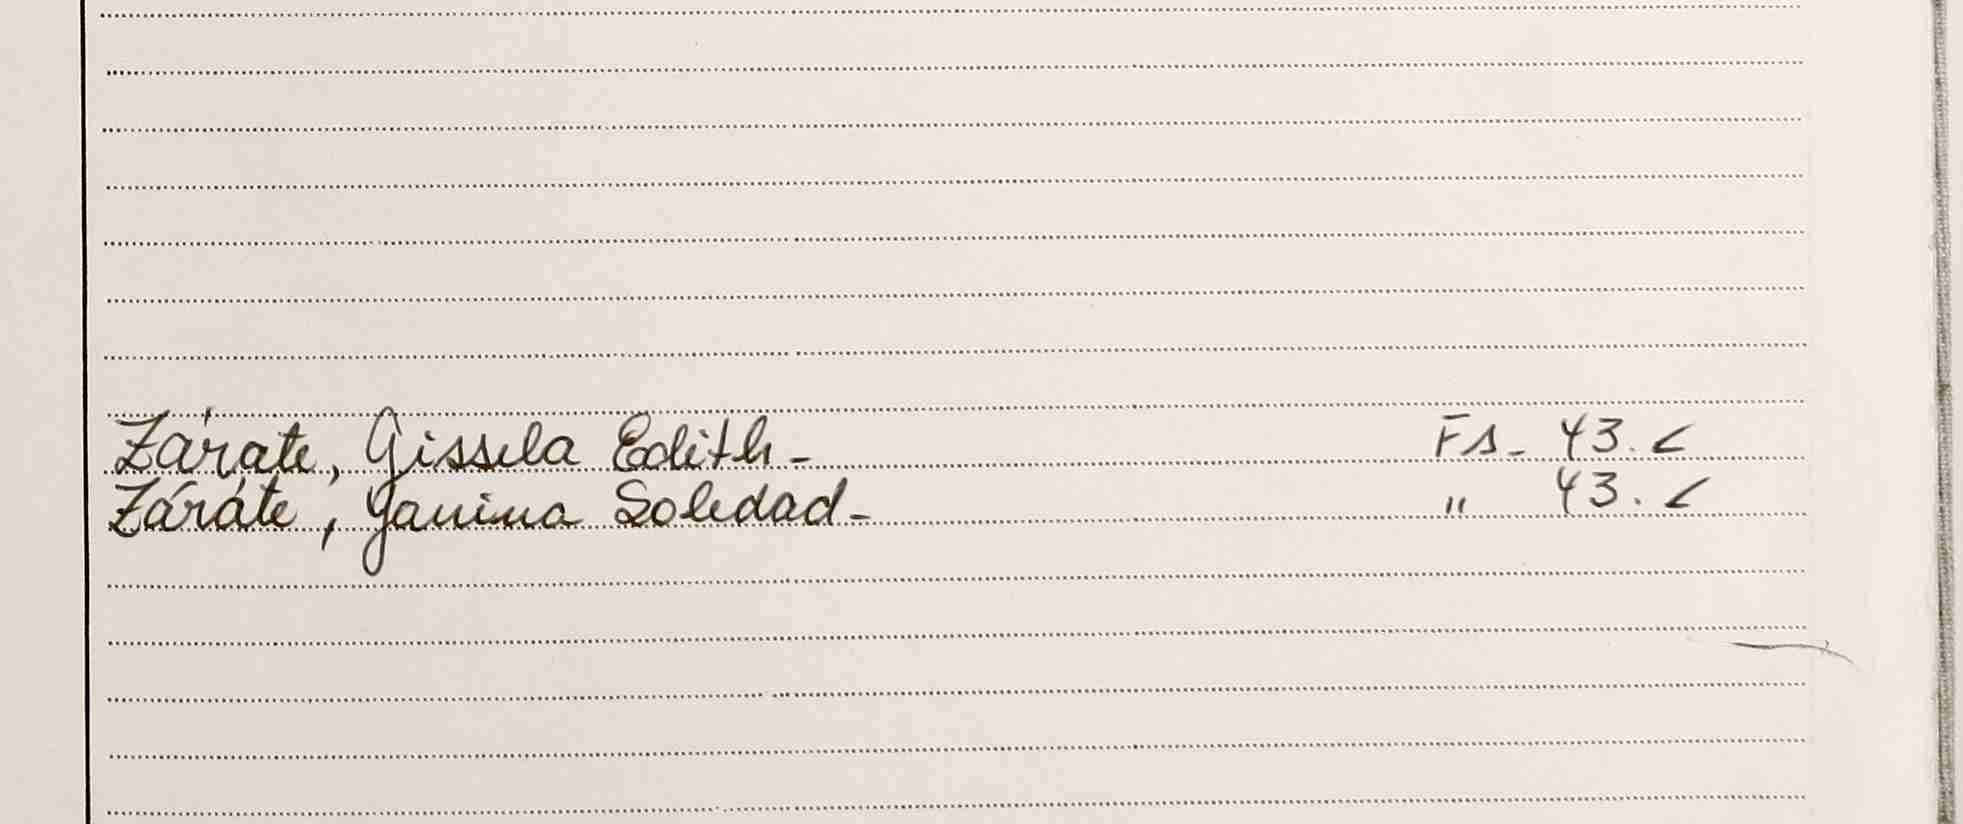 Zárate, Gissela Edith - Fs - 43. <
Zárate, Yanina Soledad - " 43. <